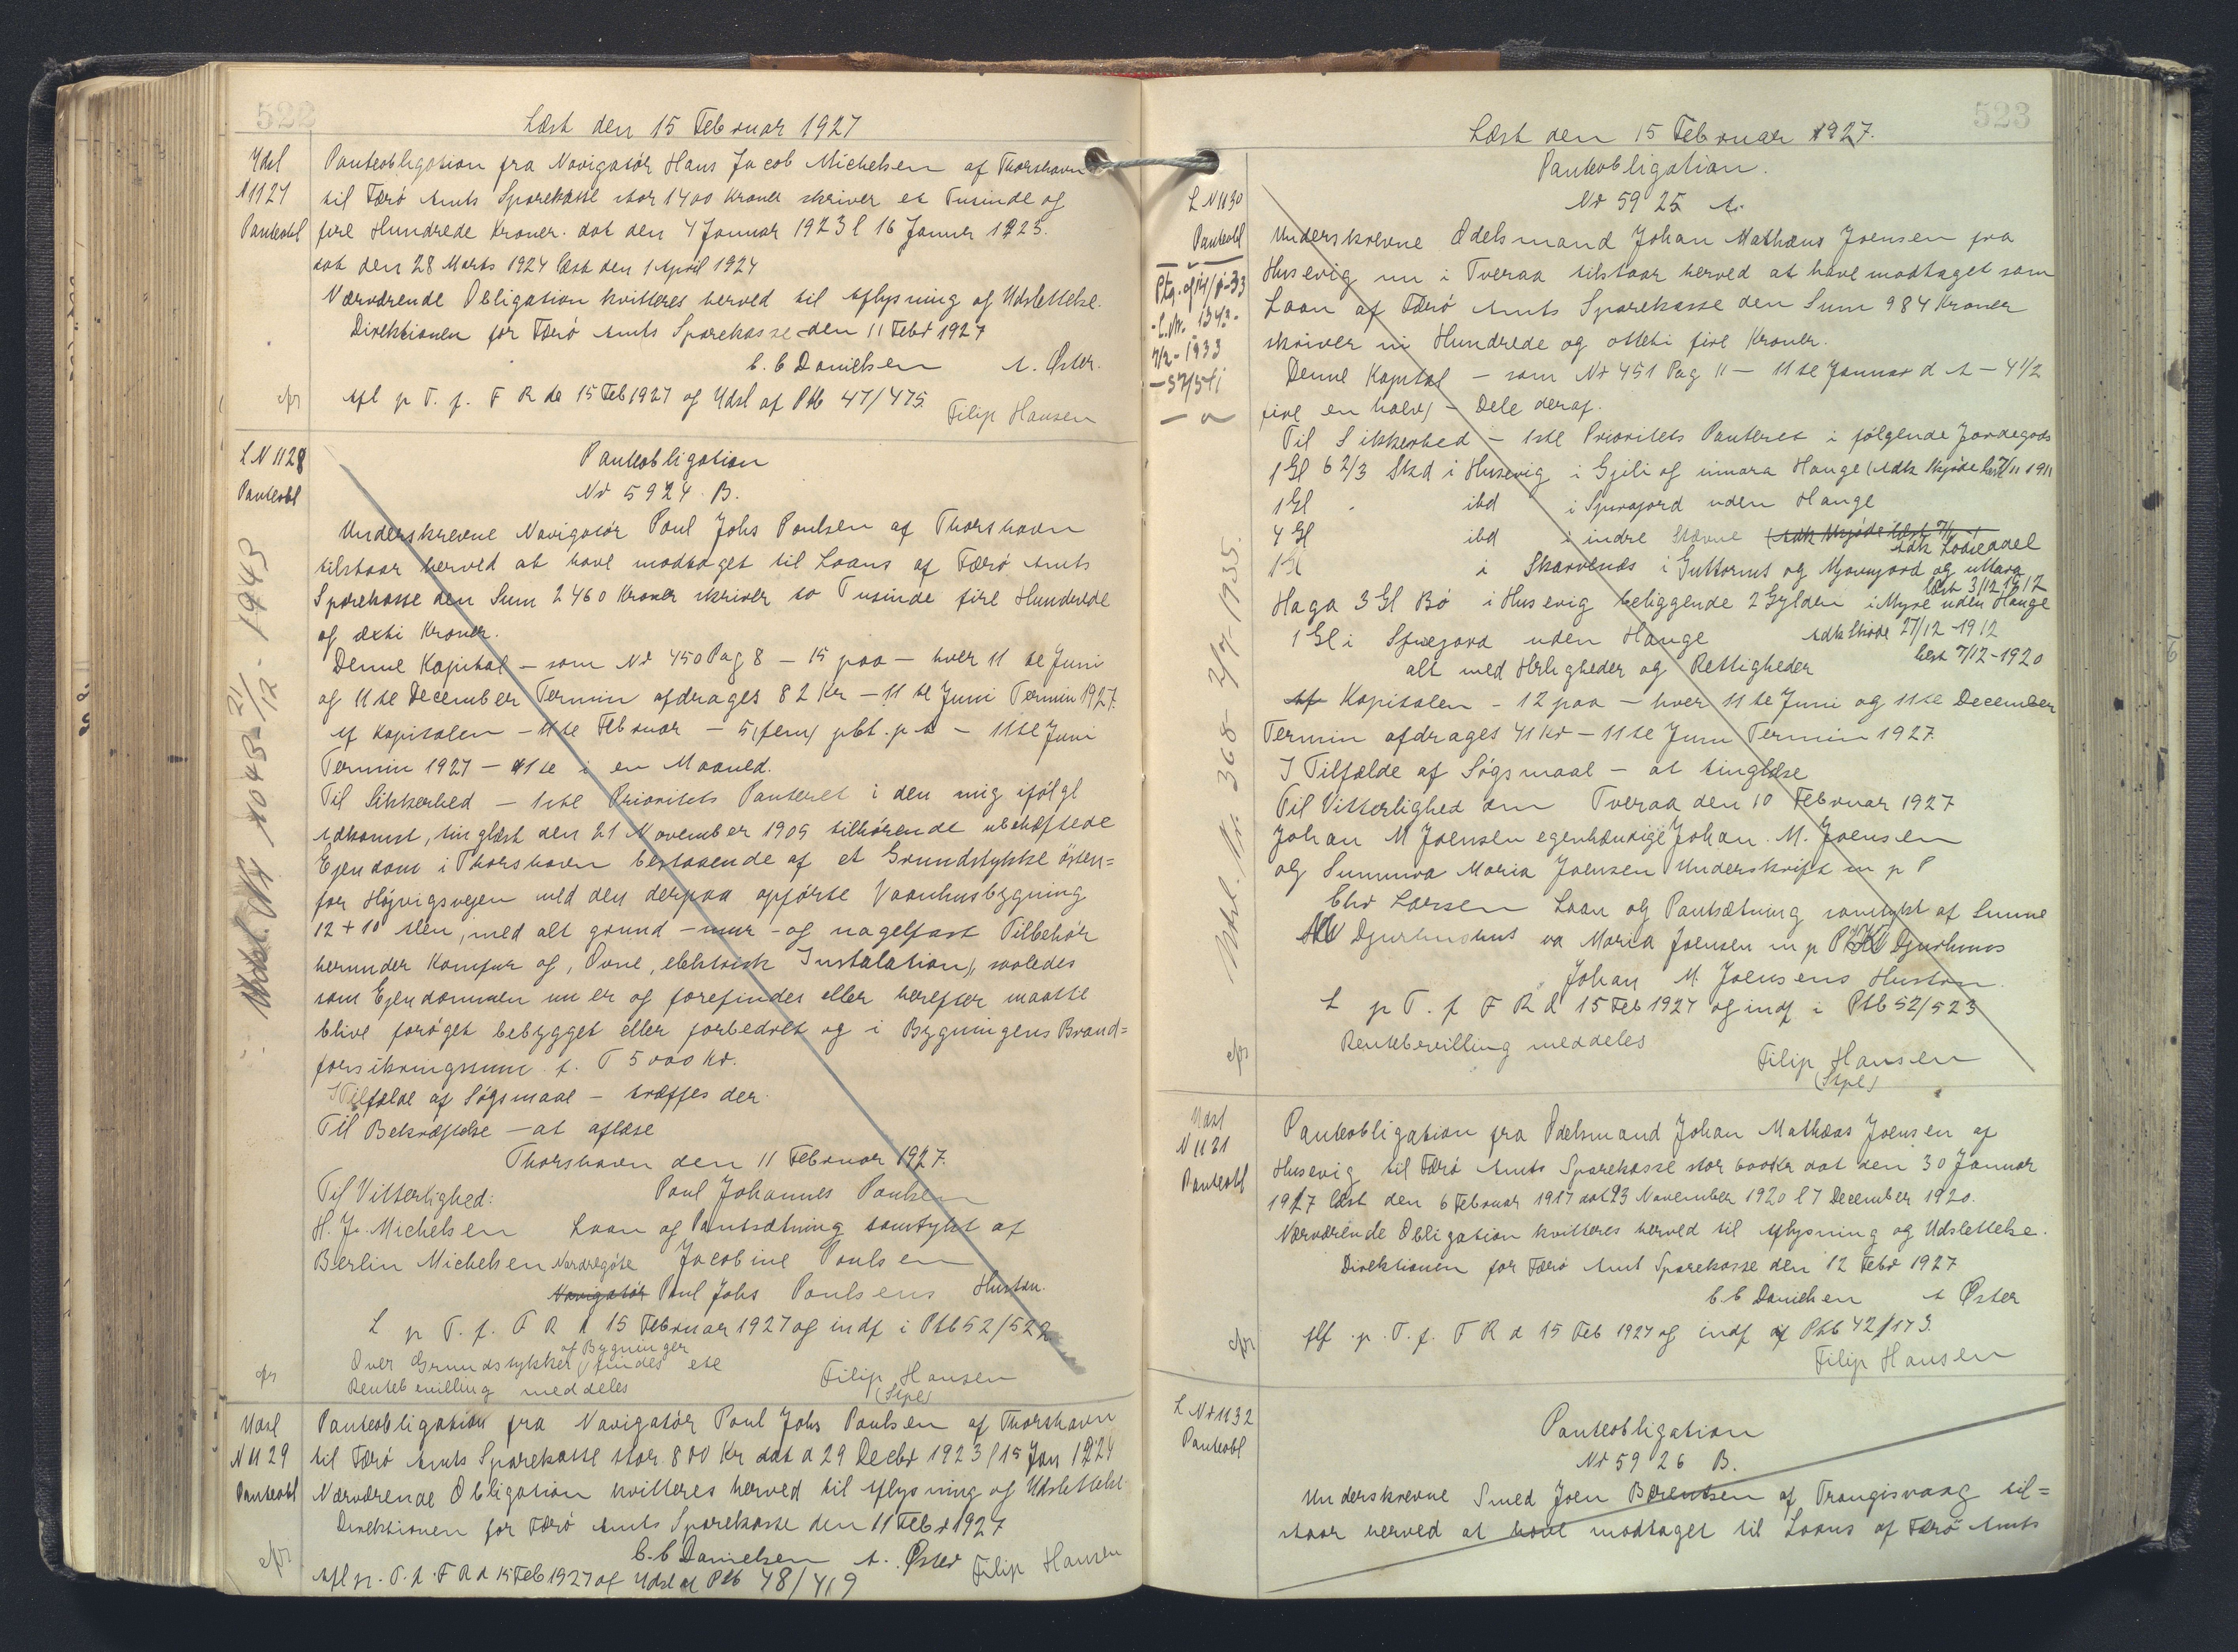 522
Læst den 15 Februar 1927
Udsl
N 1127
Panteobl
Panteobligation fra Navigatør Hans Jacob Michelsen af Thorshavn
til Færø Amts Sparekasse stor 1400 Kroner skriver et Tusinde og
fire Hundrede Kroner. dat den 4 Januar 1923 l 16 Januar 1923.
dat den 28 Marts 1924 læst den 1 April 1924
Nærværende Obligation kvitteres herved til Aflysning og Udslettelse.
Direktionen for Færø Amts Sparekasse den 11 Febr 1927
C. C Danielsen A. Øster.
Afl p T. f. F R d 15 Feb 1927 og Udsl af Ptb 47/475.
Filip Hansen
L N 1128
Panteobl
Panteobligation
Nr 5924 B.
Underskrevne Navigatør Poul Johs Poulsen af Thorshavn
tilstaar herved at have modtaget til Laans af Færø Amts
Sparekasse den Sum 2460 Kroner skriver to Tusinde fire Hundrede
og sexti Kroner.
Denne Kapital – som Nr 450 Pag 8 – 15 paa – hver 11 te Juni
og 11 te December Termin afdrages 82 Kr – 11 te Juni Termin 1927.
Af Kapitalen – 11 te Februar – 5 (fem) pCt. p A – 11te Juni
Termin 1927 – 11 te i en Maaned.
Til Sikkerhed – 1ste Prioritets Panteret i den mig ifølge
Adkomst, tinglæst den 21 November 1905 tilhørende ubehæftede
Ejendom i Thorshavn bestaaende af et Grundstykke østen=
for Højvigsvejen med den derpaa opførte Vaanhusbygning
12 + 10 Alen, med alt grund – mur – og nagelfast Tilbehør
herunder Komfur og, Ovne, elektrisk Instalation, saaledes
som Ejendommen nu er og forefindes eller herefter maatte
blive forøget bebygget eller forbedret og i Bygningens Brand=
forsikringssum f. T 5000 Kr.
I Tilfælde af Søgsmaal – træffes der.
Til Bekræftelse – at aflæse
Thorshavn den 11 Februar 1927.
Til Vitterlighed: Poul Johannes Poulsen
H. J. Michelsen Laan og Pantsætning samtykt af
Berlin Michelsen Nordregøte Jacobine Poulsen
Navigatør Poul Johs Poulsens Hustru.
L p T. f. F R d 15 Februar 1927 og indf i Ptb 52/522
Over Grundstykket og Bygninger findes ete
Rentebevilling meddeles
Filip Hansen
(Stpl)
Udsl
N 1129
Panteobl
Panteobligation fra Navigatør Poul Johs Poulsen af Thorshavn
til Færø Amts Sparekasse stor 800 Kr dat d 29 Decbr 1923 l 15 Jan 1924
Nærværende Obligation kvitteres herved til Aflysning og Udslettelse
Direktionen for Færø Amts Sparekasse den 11 Febr 1927
C. C Danielsen A. Øster
Filip Hansen
Afl p. T. f. F R d 15 Feb 1927 og Udsl af Ptb 48/419
523
Læst den 15 Februar 1927.
L N 1130
Panteobl
Panteobligation.
Nr 5925 A.
Underskrevne Odelsmand Johan Mathæus Joensen fra
Husevig nu i Tveraa tilstaar herved at have modtaget som
Laan af Færø Amts Sparekasse den Sum 984 Kroner
skriver ni Hundrede og otteti fire Kroner.
Denne Kapital – som Nr 451 Pag 11 – 11 te Januar d A – 4 1/2
fire en halv) – Dele deraf.
Til Sikkerhed – 1ste Prioritets Panteret i følgende Jordegods
1 Gl 6 2/3 Skd i Husevig i Gjeli og innara Hauge (Adk Skjøde læst 7/11 1911
1 Gl ibd i Spurajord uden Hauge
4 Gl ibd i indre Stovne
Adk Lodseddel
1 Gl i Skarvenæs i Guttorms og Mjovujord og uttara
læst 3/12 1912
Haga 3 Gl Bø i Husevig beliggende 2 Gylden i Myre uden Hauge
1 Gl i Spuejord uden Hauge Adk Skøde 27/12 – 1912
alt med Herligheder og Rettigheder læst 7/12 – 1920
Af Kapitalen – 12 paa – hver 11 te Juni og 11 te December
Termin afdrages 41 Kr – 11 te Juni Termin 1927.
I Tilfælde af Søgsmaal – at tinglæse
Til Vitterlighed om Tveraa den 10 Februar 1927
Johan M Joensen egenhændige Johan. M. Joensen
og Sunniva Maria Joensen Underskrift m p P
Chr Larsen Laan og Pantsætning samtykt af Sunne
Djurhuus va Maria Joensen m p P Djurhuus
Johan M. Joensens Hustru.
L p T. f F R d 15 Feb 1927 og indf i Ptb 52/523
Rentebevilling meddeles
Filip Hansen
(Stpl)
Udsl
N 1131
Panteobl
Panteobligation fra Odelsmand Johan Mathæus Joensen af
Husevig til Færø Amts Sparekasse stor 600 Kr dat den 30 Januar
1917 læst den 6 Februar 1917 dat 23 November 1920 l 7 December 1920.
Nærværende Obligation kvitteres herved til Aflysning og Udslettelse.
Direktionen for Færø Amt Sparekasse den 12 Febr 1927
C. C Danielsen A Øster
Afl. p. T. f. F R d 15 Feb 1927 og indf af Ptb 42/173.
Filip Hansen
L Nr 1132
Panteobl
Panteobligation
Nr 5926 B.
Underskrevne Smed Joen Berentsen af Trangisvaag til=
staar herved at have modtaget til Laans af Færø Amts